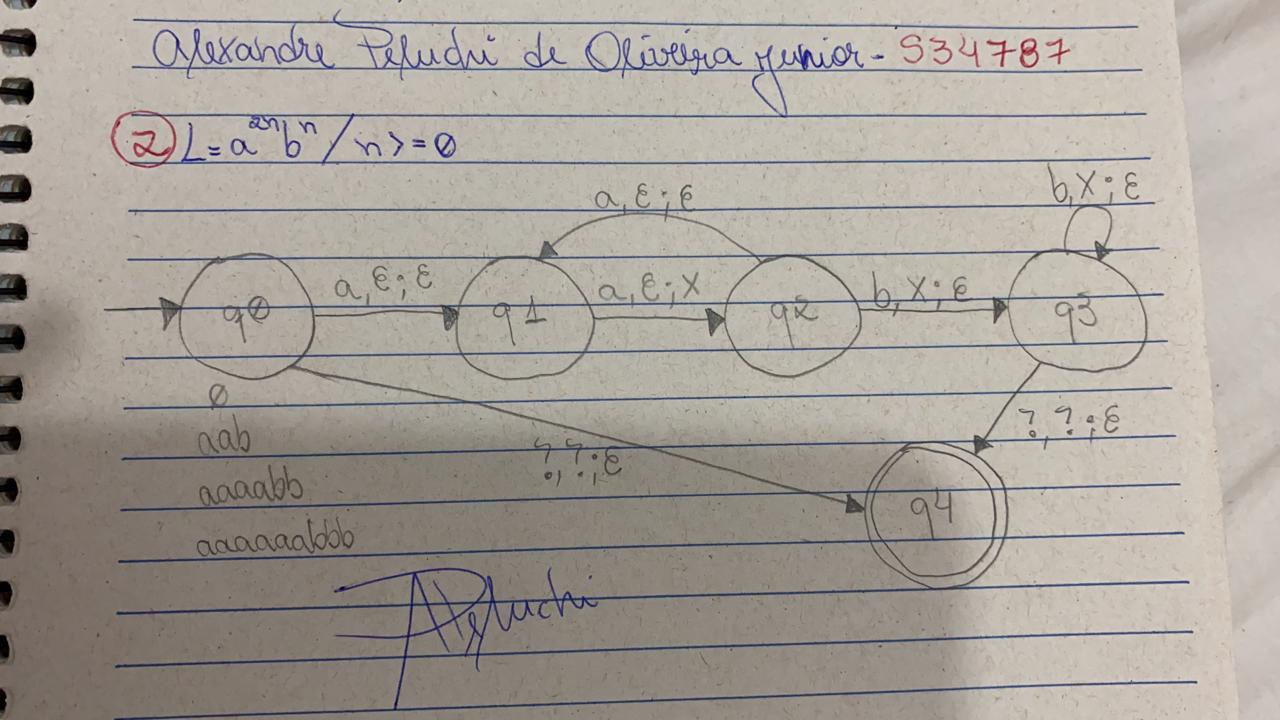 Alexandre Peluchi de Oliveira Junior - 534787
2 L = a^2n b^n / n >= 0
a, ε; ε
b, X; ε
a, ε; ε
a, ε; X
b, X; ε
q0
q1
q2
q3
?, ?; ε
?, ?; ε
q4
0
aab
aaaabb
aaaaaabbb
APeluchi